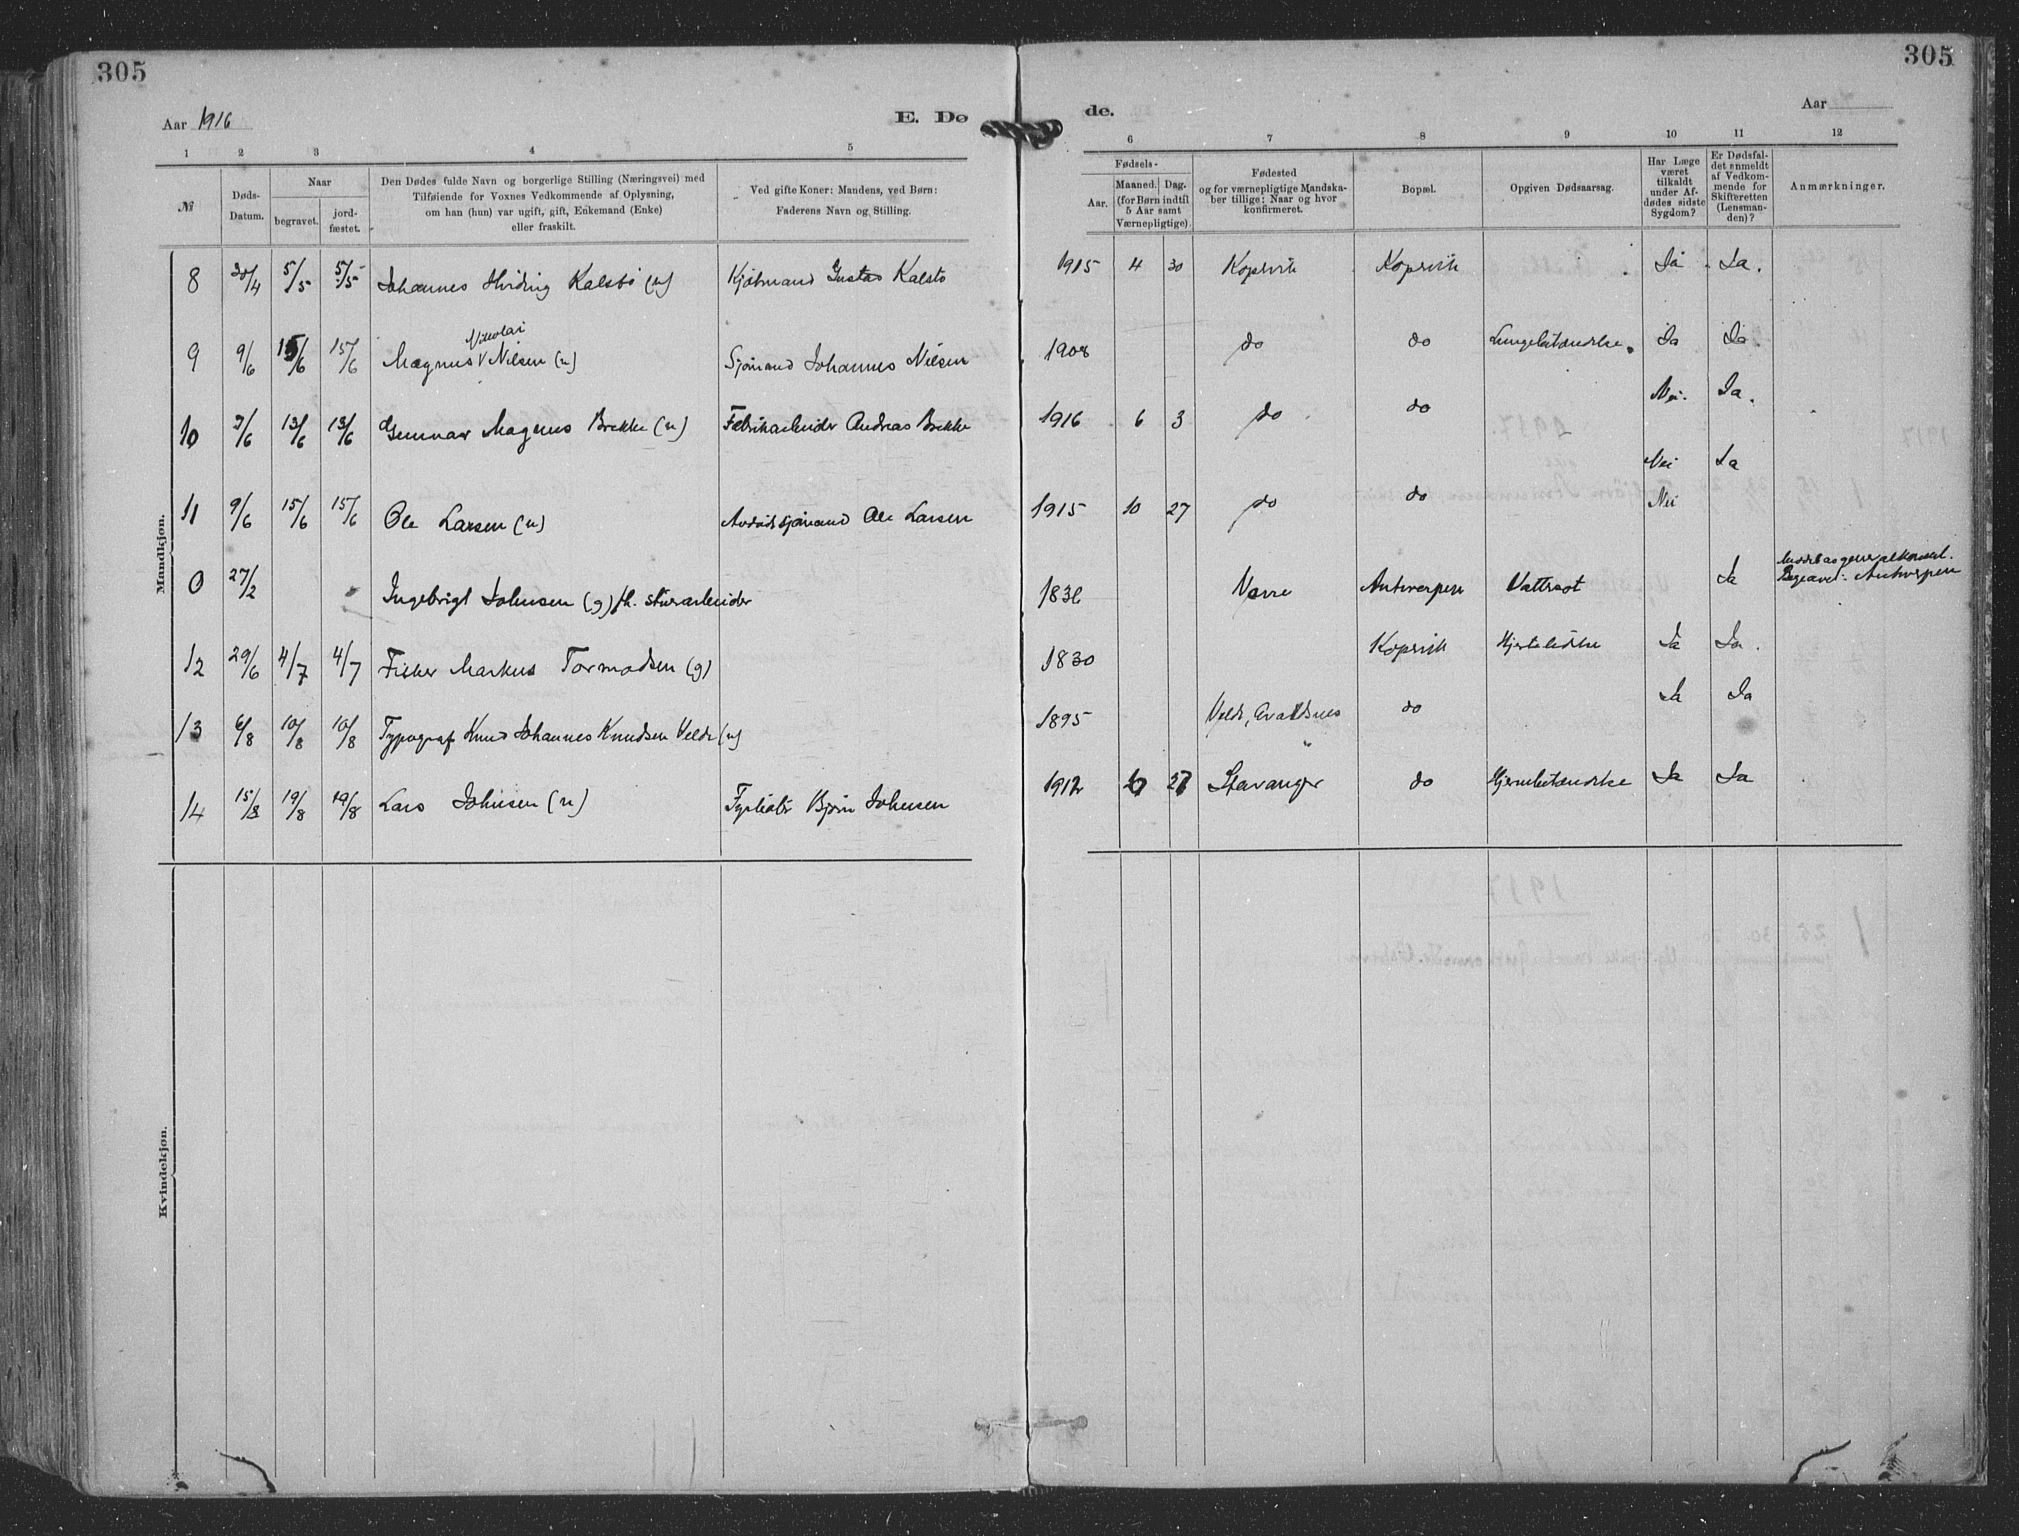 305
305
Aar 1916
E. Dø
de.
Aar
1 2 3 4 5 6 7 8 9 10 11 12
№
Døds-
Datum.
Naar
begravet.
jord-
fæstet.
Den Dødes fulde Navn og borgerlige Stilling (Næringsvei) med
Tilføiende for Voxnes Vedkommende af Oplysning,
om han (hun) var ugift, gift, Enkemand (Enke)
eller fraskilt.
Ved gifte Koner: Mandens, ved Børn:
Faderens Navn og Stilling.
Fødsels-
Aar.
Maaned. Dag.
(for Børn indtil
5 Aar samt
Værnepligtige)
Fødested
og for værnepligtige Mandska-
ber tillige: Naar og hvor
konfirmeret.
Bopæl.
Opgiven Dødsaarsag.
Har Læge
været
tilkaldt
under Af-
dødes sidste
Sygdom?
Er Dødsfal-
det anmeldt
af Vedkom-
mende for
Skifteretten
(Lensman-
den)?
Anmærkninger.
Mandkjøn.
8 30/4 5/5 5/5 Johannes Hviding Kalstø (u) Kjøbmand Gustav Kalstø 1915 4 30 Kopervik Kopervik Ja Ja.
Nikolai
9 9/6 15/6 15/6 Magnus V Nilsen (u) Sjømand Johannes Nilsen 1908 do do Lungebetændelse. Ja Ja.
10 3/6 13/6 13/6 Gunnar Magnus Brekke (u) Fabrikarbeider Andreas Brekke 1916 6 3 do do Nei. Ja.
Nei Ja
11 9/6 15/6 15/6 Ole Larsen (u) Avdøde sjømand Ole Larsen 1915 10 27 do do Nei
0 27/2 Ingebrigt Johnsen (g) fh. stuerarbeider 1836 Varre Antwerpen Vattersot Ja
Begravet: Antwerpen
12 29/6 4/7 4/7 Fisker Markus Tormodsen (g) 1830 Kopervik Hjertelidelse Ja Ja.
13 6/8 10/8 10/8 Typograf Knud Johannes Knudsen Velde (u) 1895 Velde, Avaldsnes do Ja Ja
14 15/8 19/8 19/8 Lars Johnsen (u) Fyrbøter Bjørn Johnsen 1912 27 Stavanger do Hjernebetændelse Ja Ja
Kvindekjøn.